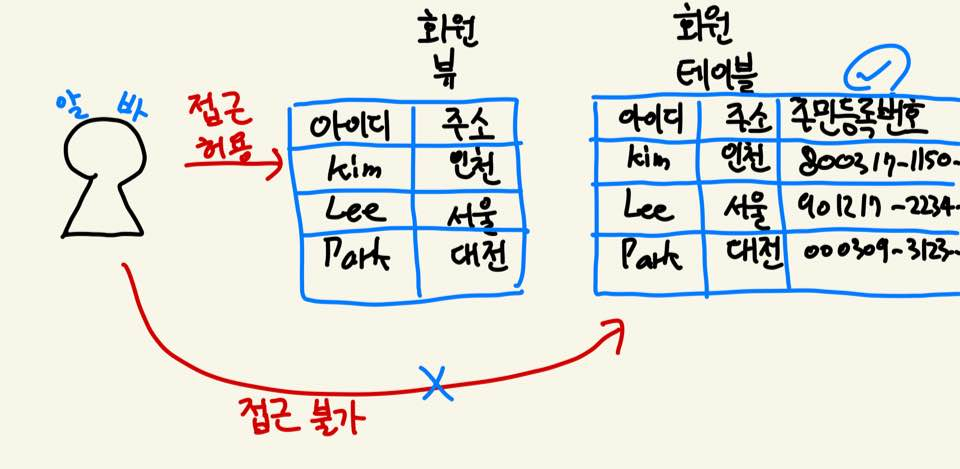 알 바
접근
허용
화원
뷰
아이디 주소
kim 인천
Lee 서울
Park 대전
화원
테이블
아이디 주소 주민등록번호
kim 인천 800317-1150-
Lee 서울 901217-2234-
Park 대전 000309-3123-
접근 불가